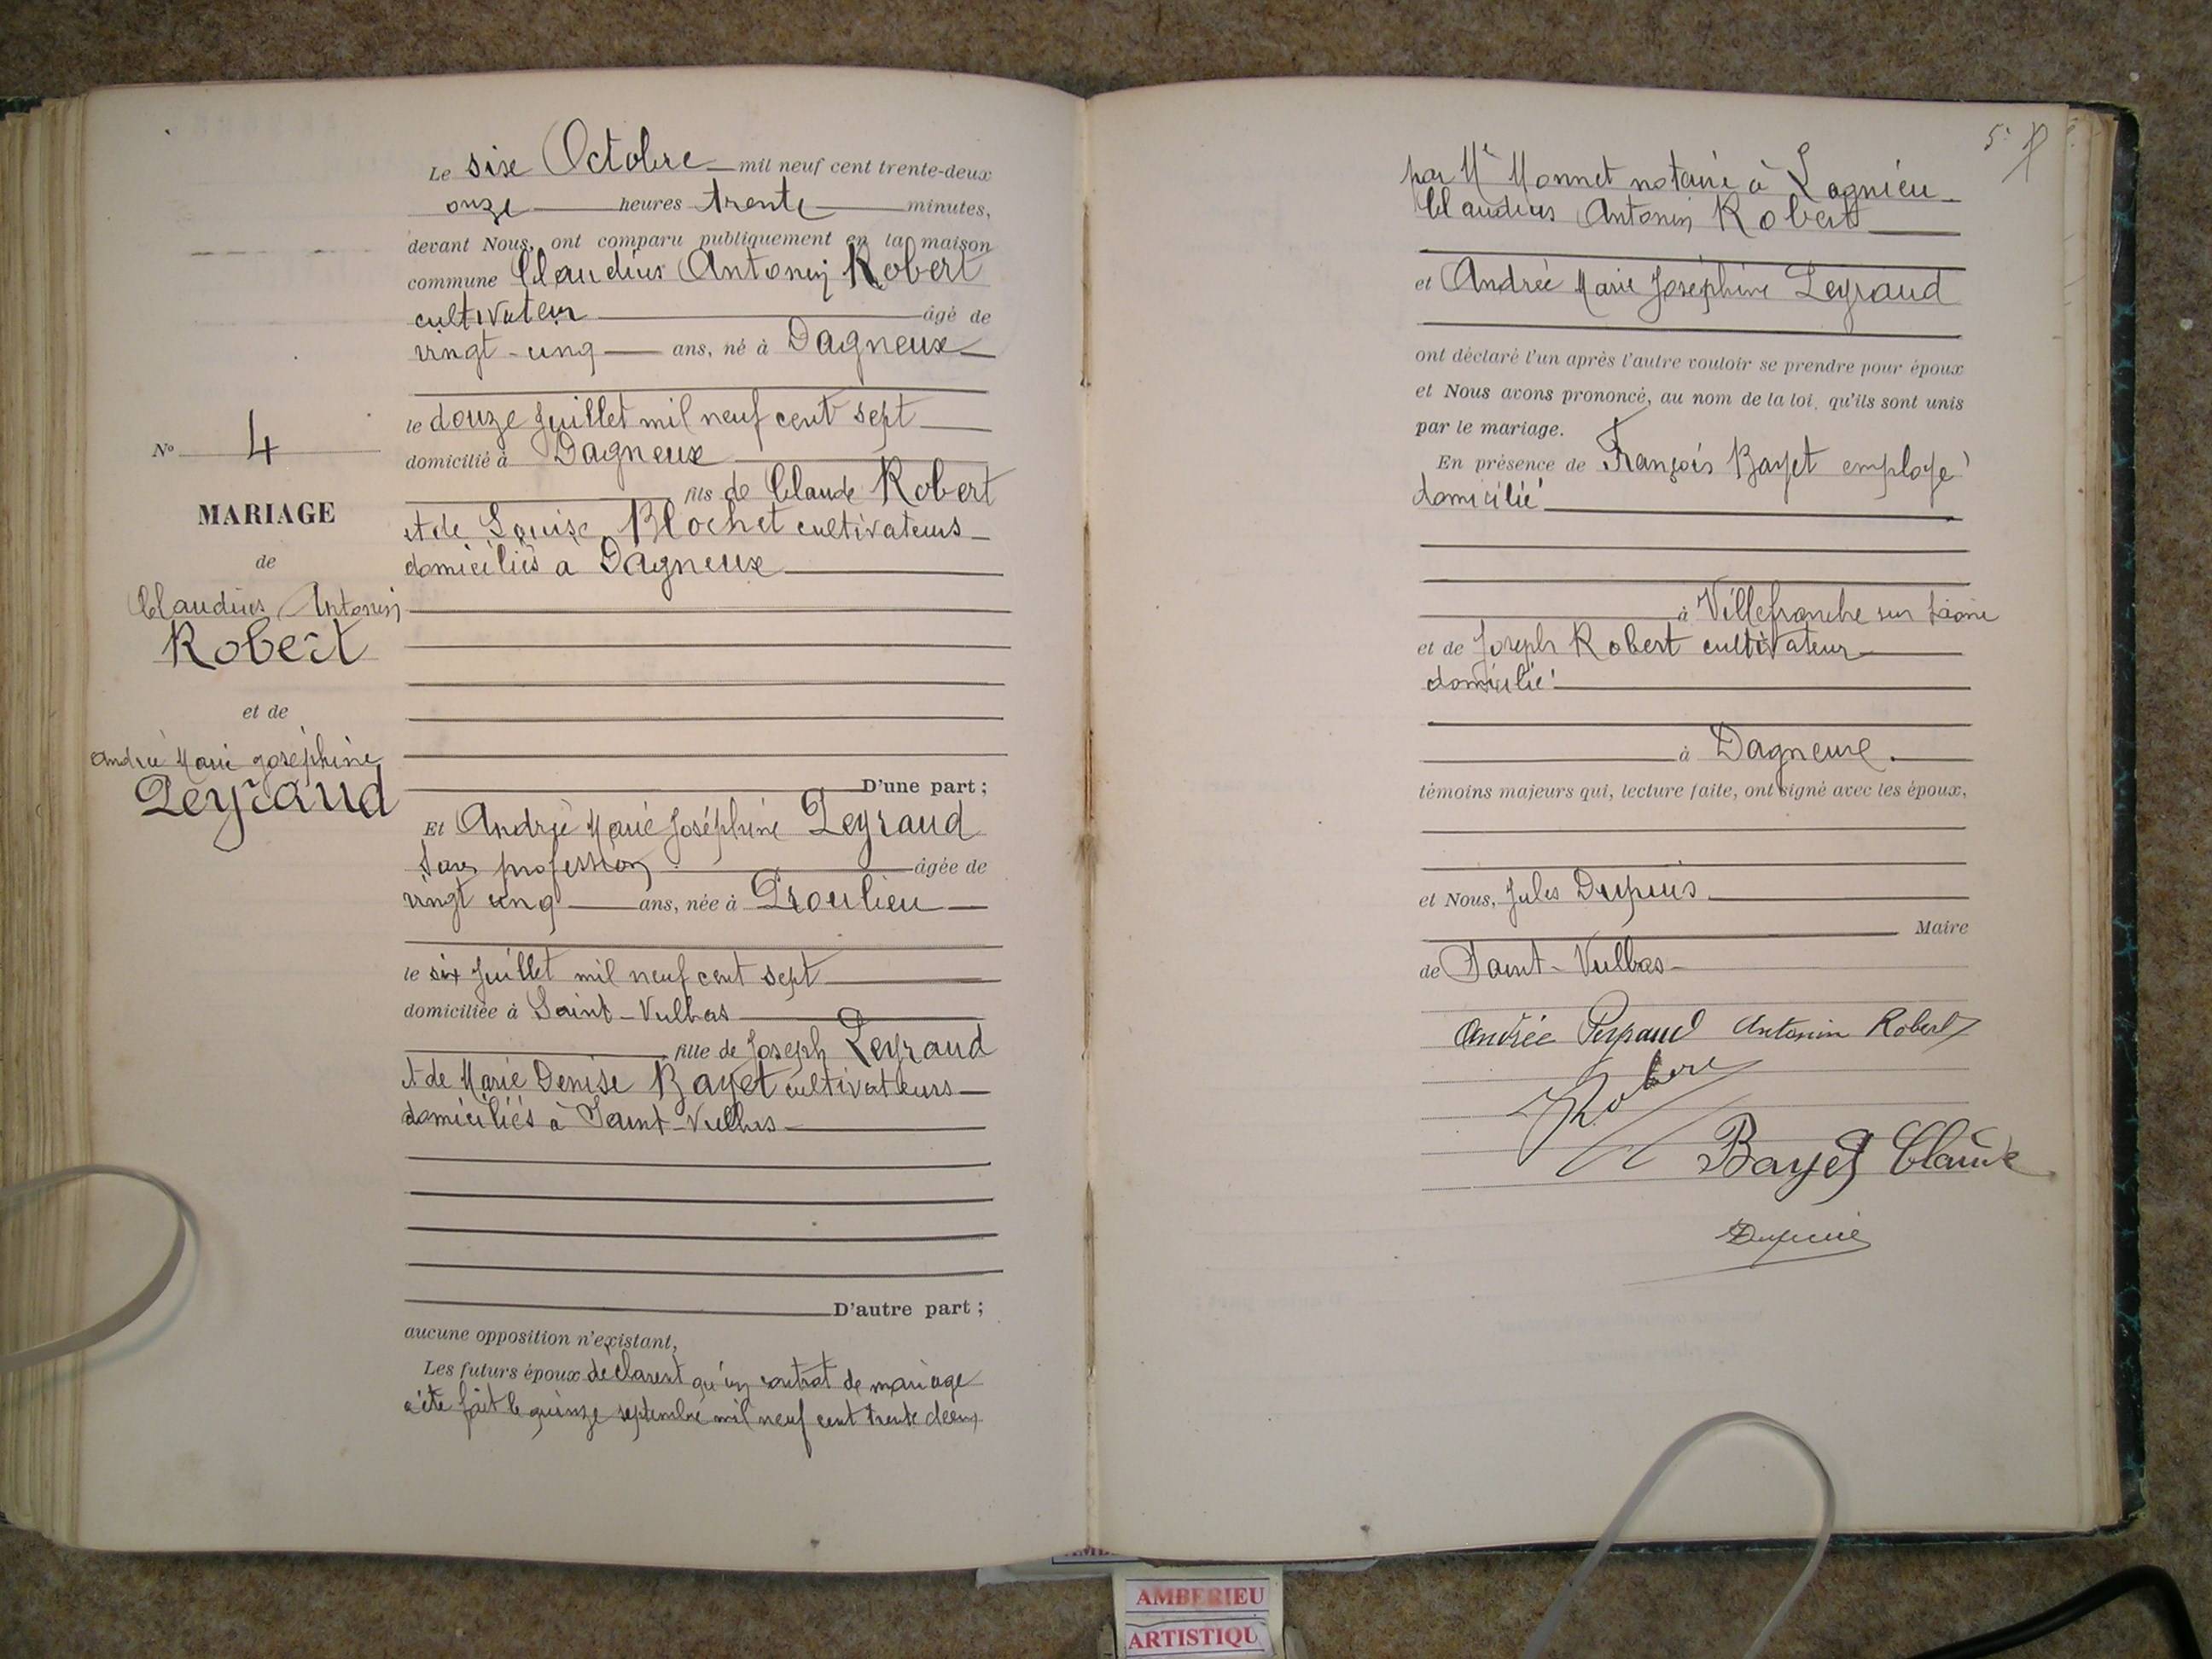 Le six Octobre mil neuf cent trente-deux
onze heures trente minutes,
devant Nous, ont comparu publiquement en la maison
commune Claudius Antonin Robert
cultivateur âgé de
vingt-cinq ans, né à Dagneux
le douze Juillet mil neuf cent sept
domicilié à Dagneux
fils de Claude Robert
et de Louise Blochet cultivateurs
domiciliés à Dagneux
D'une part ;
Et Andrée Marie Joséphine Peyraud
Sans profession âgée de
vingt cinq ans, née à Proulieu
le six Juillet mil neuf cent sept
domiciliée à Saint-Vulbas
fille de Joseph Peyraud
et de Marie Denise Bayet cultivateurs
domiciliés à Saint-Vulbas
D'autre part ;
aucune opposition n'existant,
Les futurs époux déclarent qu'un contrat de mariage
a été fait le quinze septembre mil neuf cent trente deux
No 4
MARIAGE
de
Claudius Antonin
Robert
et de
Andrée Marie Joséphine
Peyraud
5
par Me Monnet notaire à Lagnieu
Claudius Antonin Robert
et Andrée Marie Joséphine Peyraud
ont déclaré l'un après l'autre vouloir se prendre pour époux
et Nous avons prononcé, au nom de la loi, qu'ils sont unis
par le mariage.
En présence de François Bayet employé
domicilié
à Villefranche sur Saône
et de Joseph Robert cultivateur
domicilié
à Dagneux.
témoins majeurs qui, lecture faite, ont signé avec les époux,
et Nous, Jules Dupuis
Maire
de Saint-Vulbas
Andrée Peyraud Antonin Robert
Robert
Bayet Claude
Dupuis
AMBERIEU
ARTISTIQU